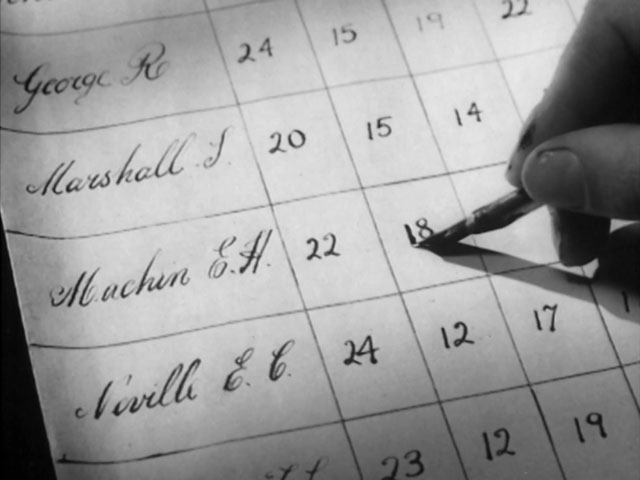 George R 24 15 19 22
Marshall J. 20 15 14
Machin E.H. 22 18
Neville E. C. 24 12 17
23 12 19